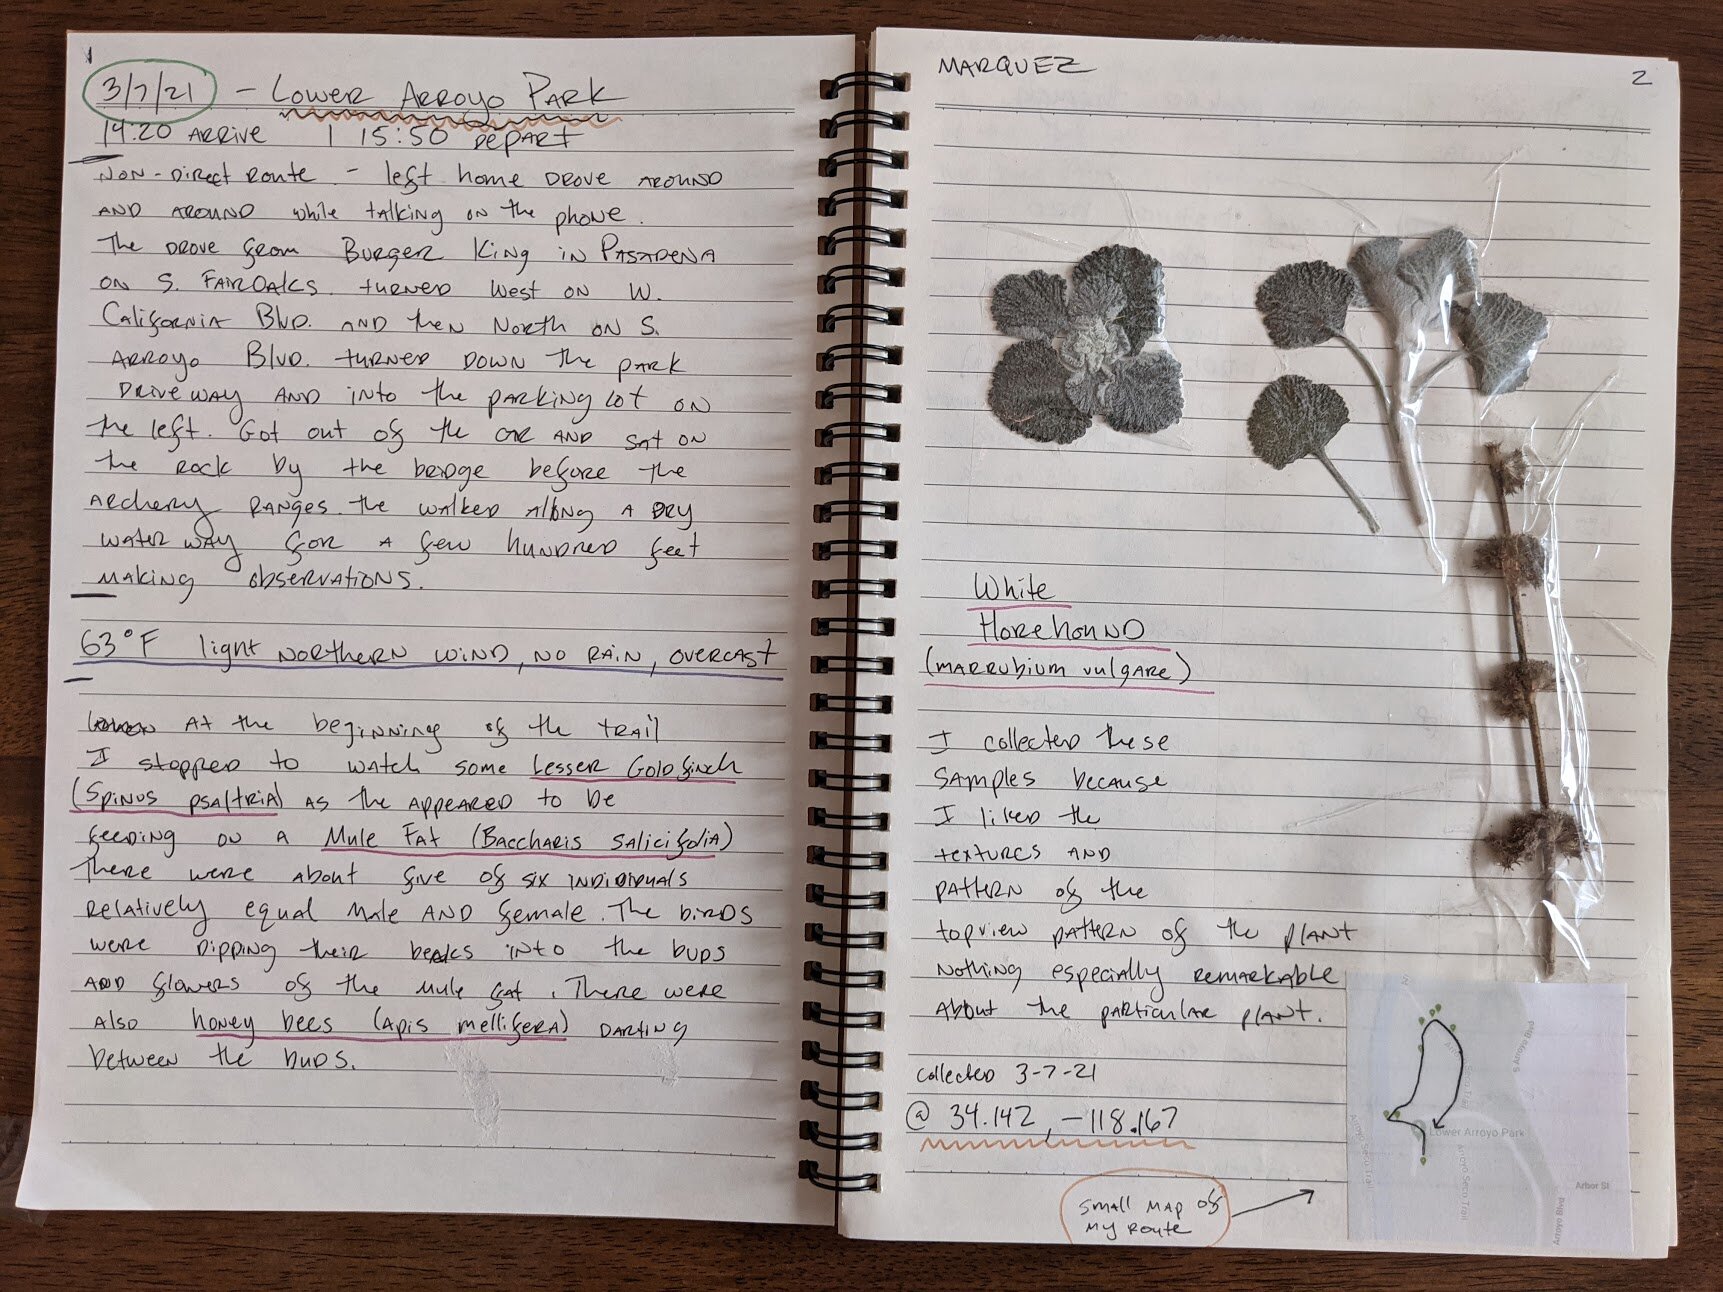 1
3/7/21 - Lower Arroyo Park
14:20 Arrive | 15:50 Depart
Non-direct route - left home drove around
and around while talking on the phone.
The drove from Burger King in Pasadena
on S. Fair Oaks. turned West on W.
California Blvd. and then North on S.
Arroyo Blvd. turned down the park
driveway and into the parking lot on
the left. Got out of the car and sat on
the rock by the bridge before the
archery ranges. the walked along a dry
water way for a few hundred feet
making observations.
63°F light northern wind, no rain, overcast
At the beginning of the trail
I stopped to watch some Lesser Goldfinch
(Spinus psaltria) as the appeared to be
feeding on a Mule Fat (Baccharis salicifolia)
There were about five of six individuals
relatively equal male and female. The birds
were dipping their beaks into the buds
and flowers of the mule fat. There were
also honey bees (Apis mellifera) darting
between the buds.
MARQUEZ
2
White
Horehound
(marrubium vulgare)
I collected these
samples because
I liked the
textures and
pattern of the
topview pattern of the plant
Nothing especially remarkable
about the particular plant.
collected 3-7-21
@ 34.142, -118.167
small map of
my route
Lower Arroyo Park
Arroyo Seco Trail
Arroyo Seco Trail
S Arroyo Blvd
Arroyo Blvd
Arbor St